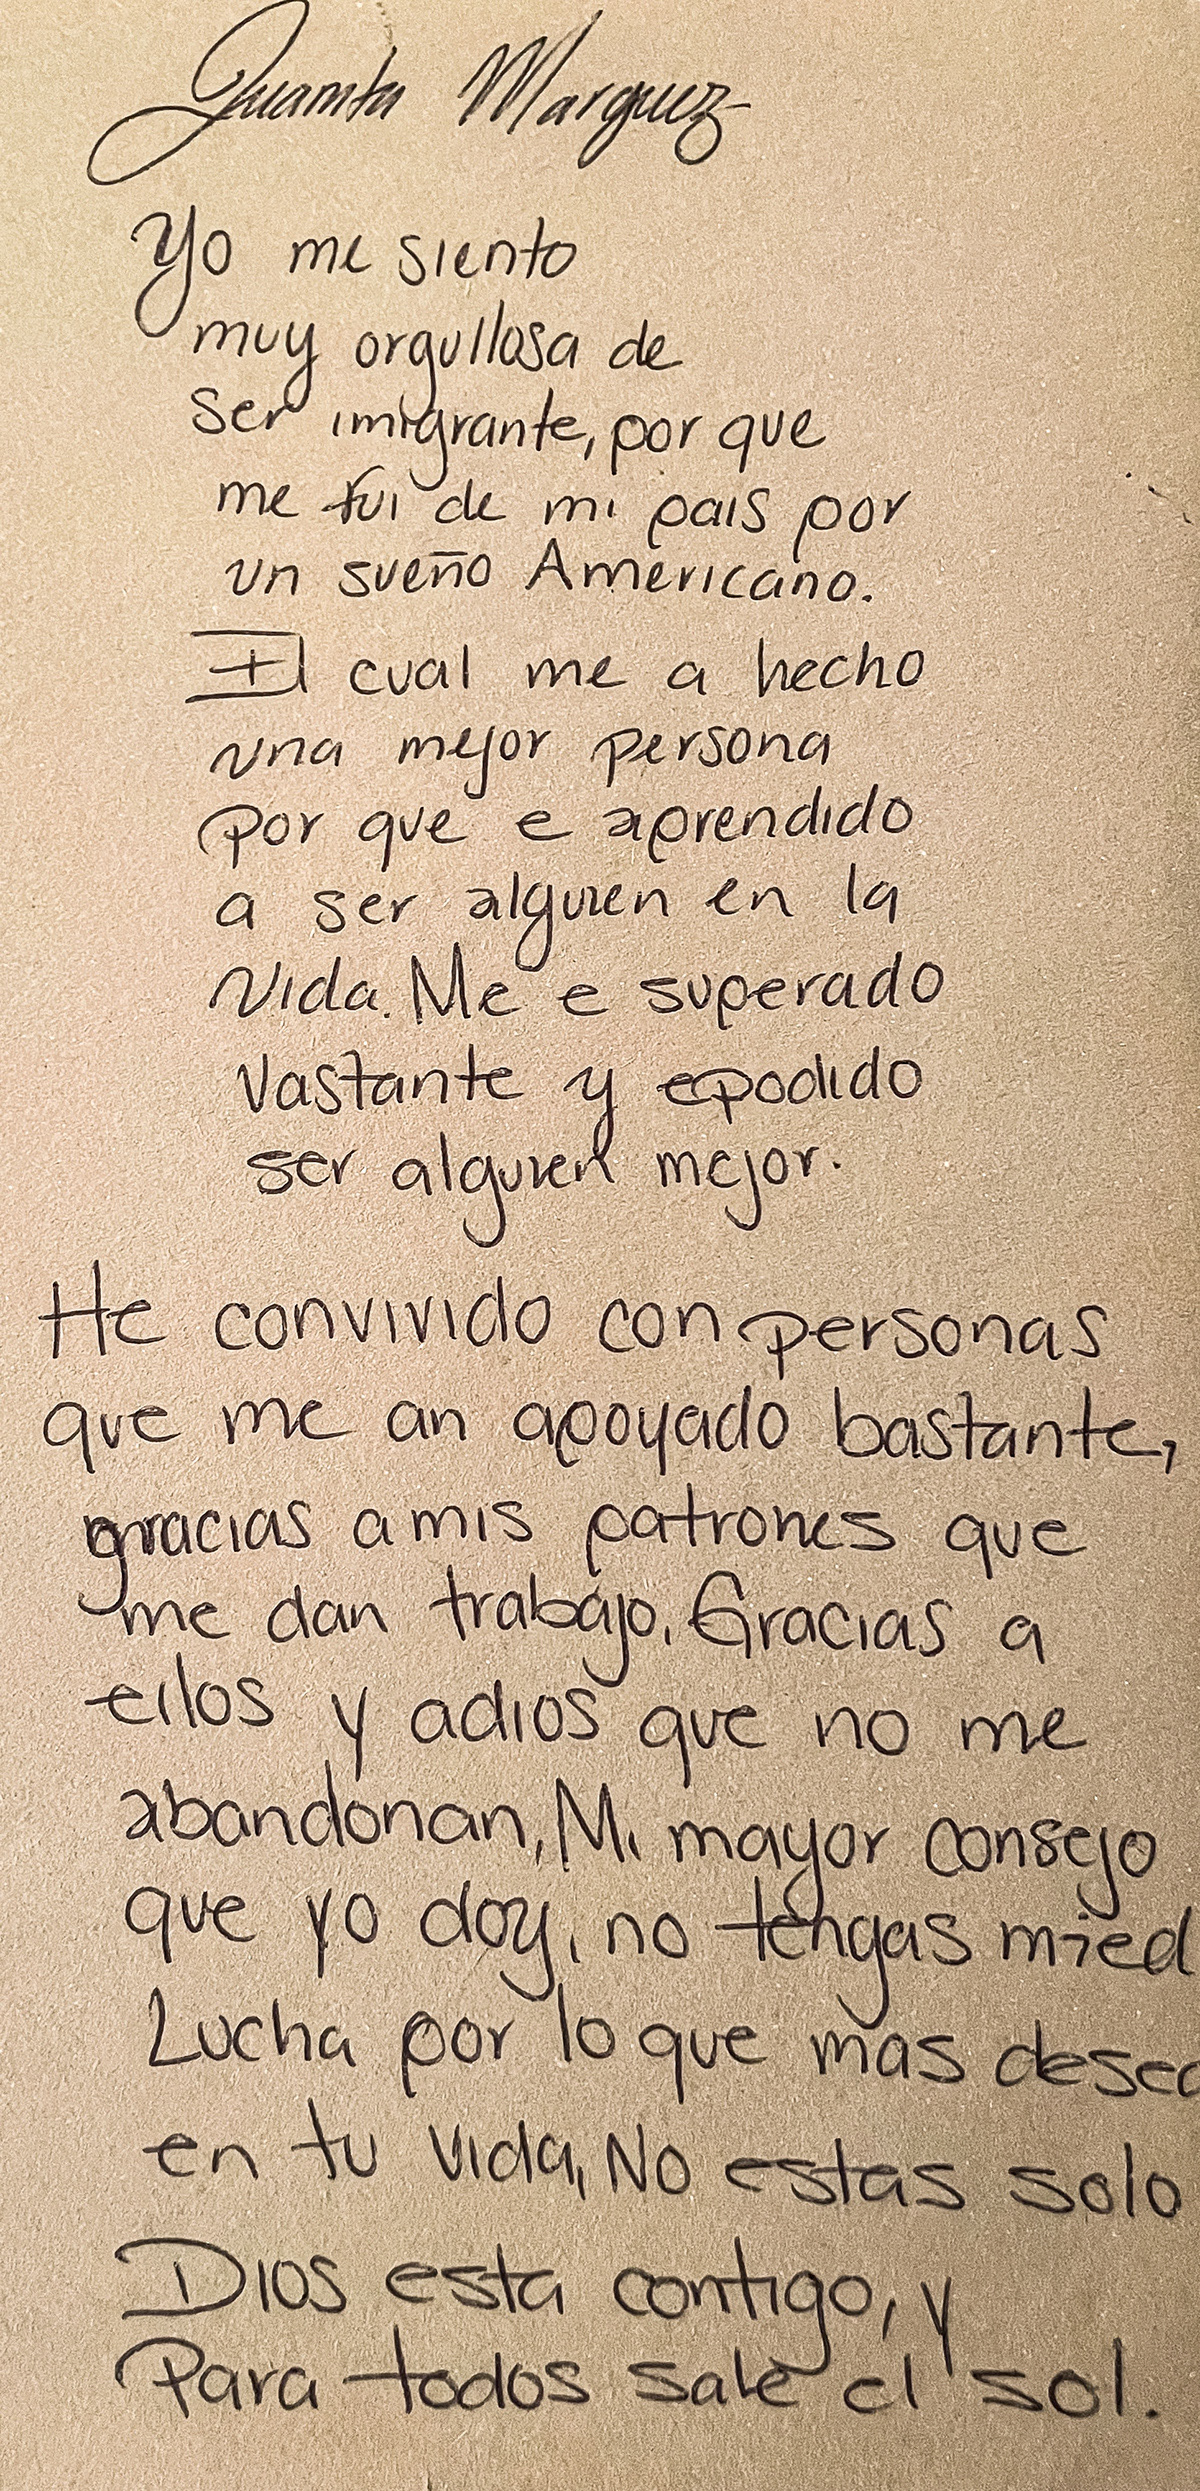 Juanita Marquez
Yo me siento
muy orgullosa de
ser imigrante, por que
me fui de mi pais por
un sueño Americano.
El cual me a hecho
una mejor persona
por que e aprendido
a ser alguien en la
vida. Me e superado
vastante y epodido
ser alguien mejor.
He convivido con personas
que me an apoyado bastante,
gracias a mis patrones que
me dan trabajo. Gracias a
ellos y adios que no me
abandonan, Mi mayor consejo
que yo doy, no tengas mied
Lucha por lo que mas desea
en tu vida, No estas solo
Dios esta contigo, y
Para todos sale el sol.